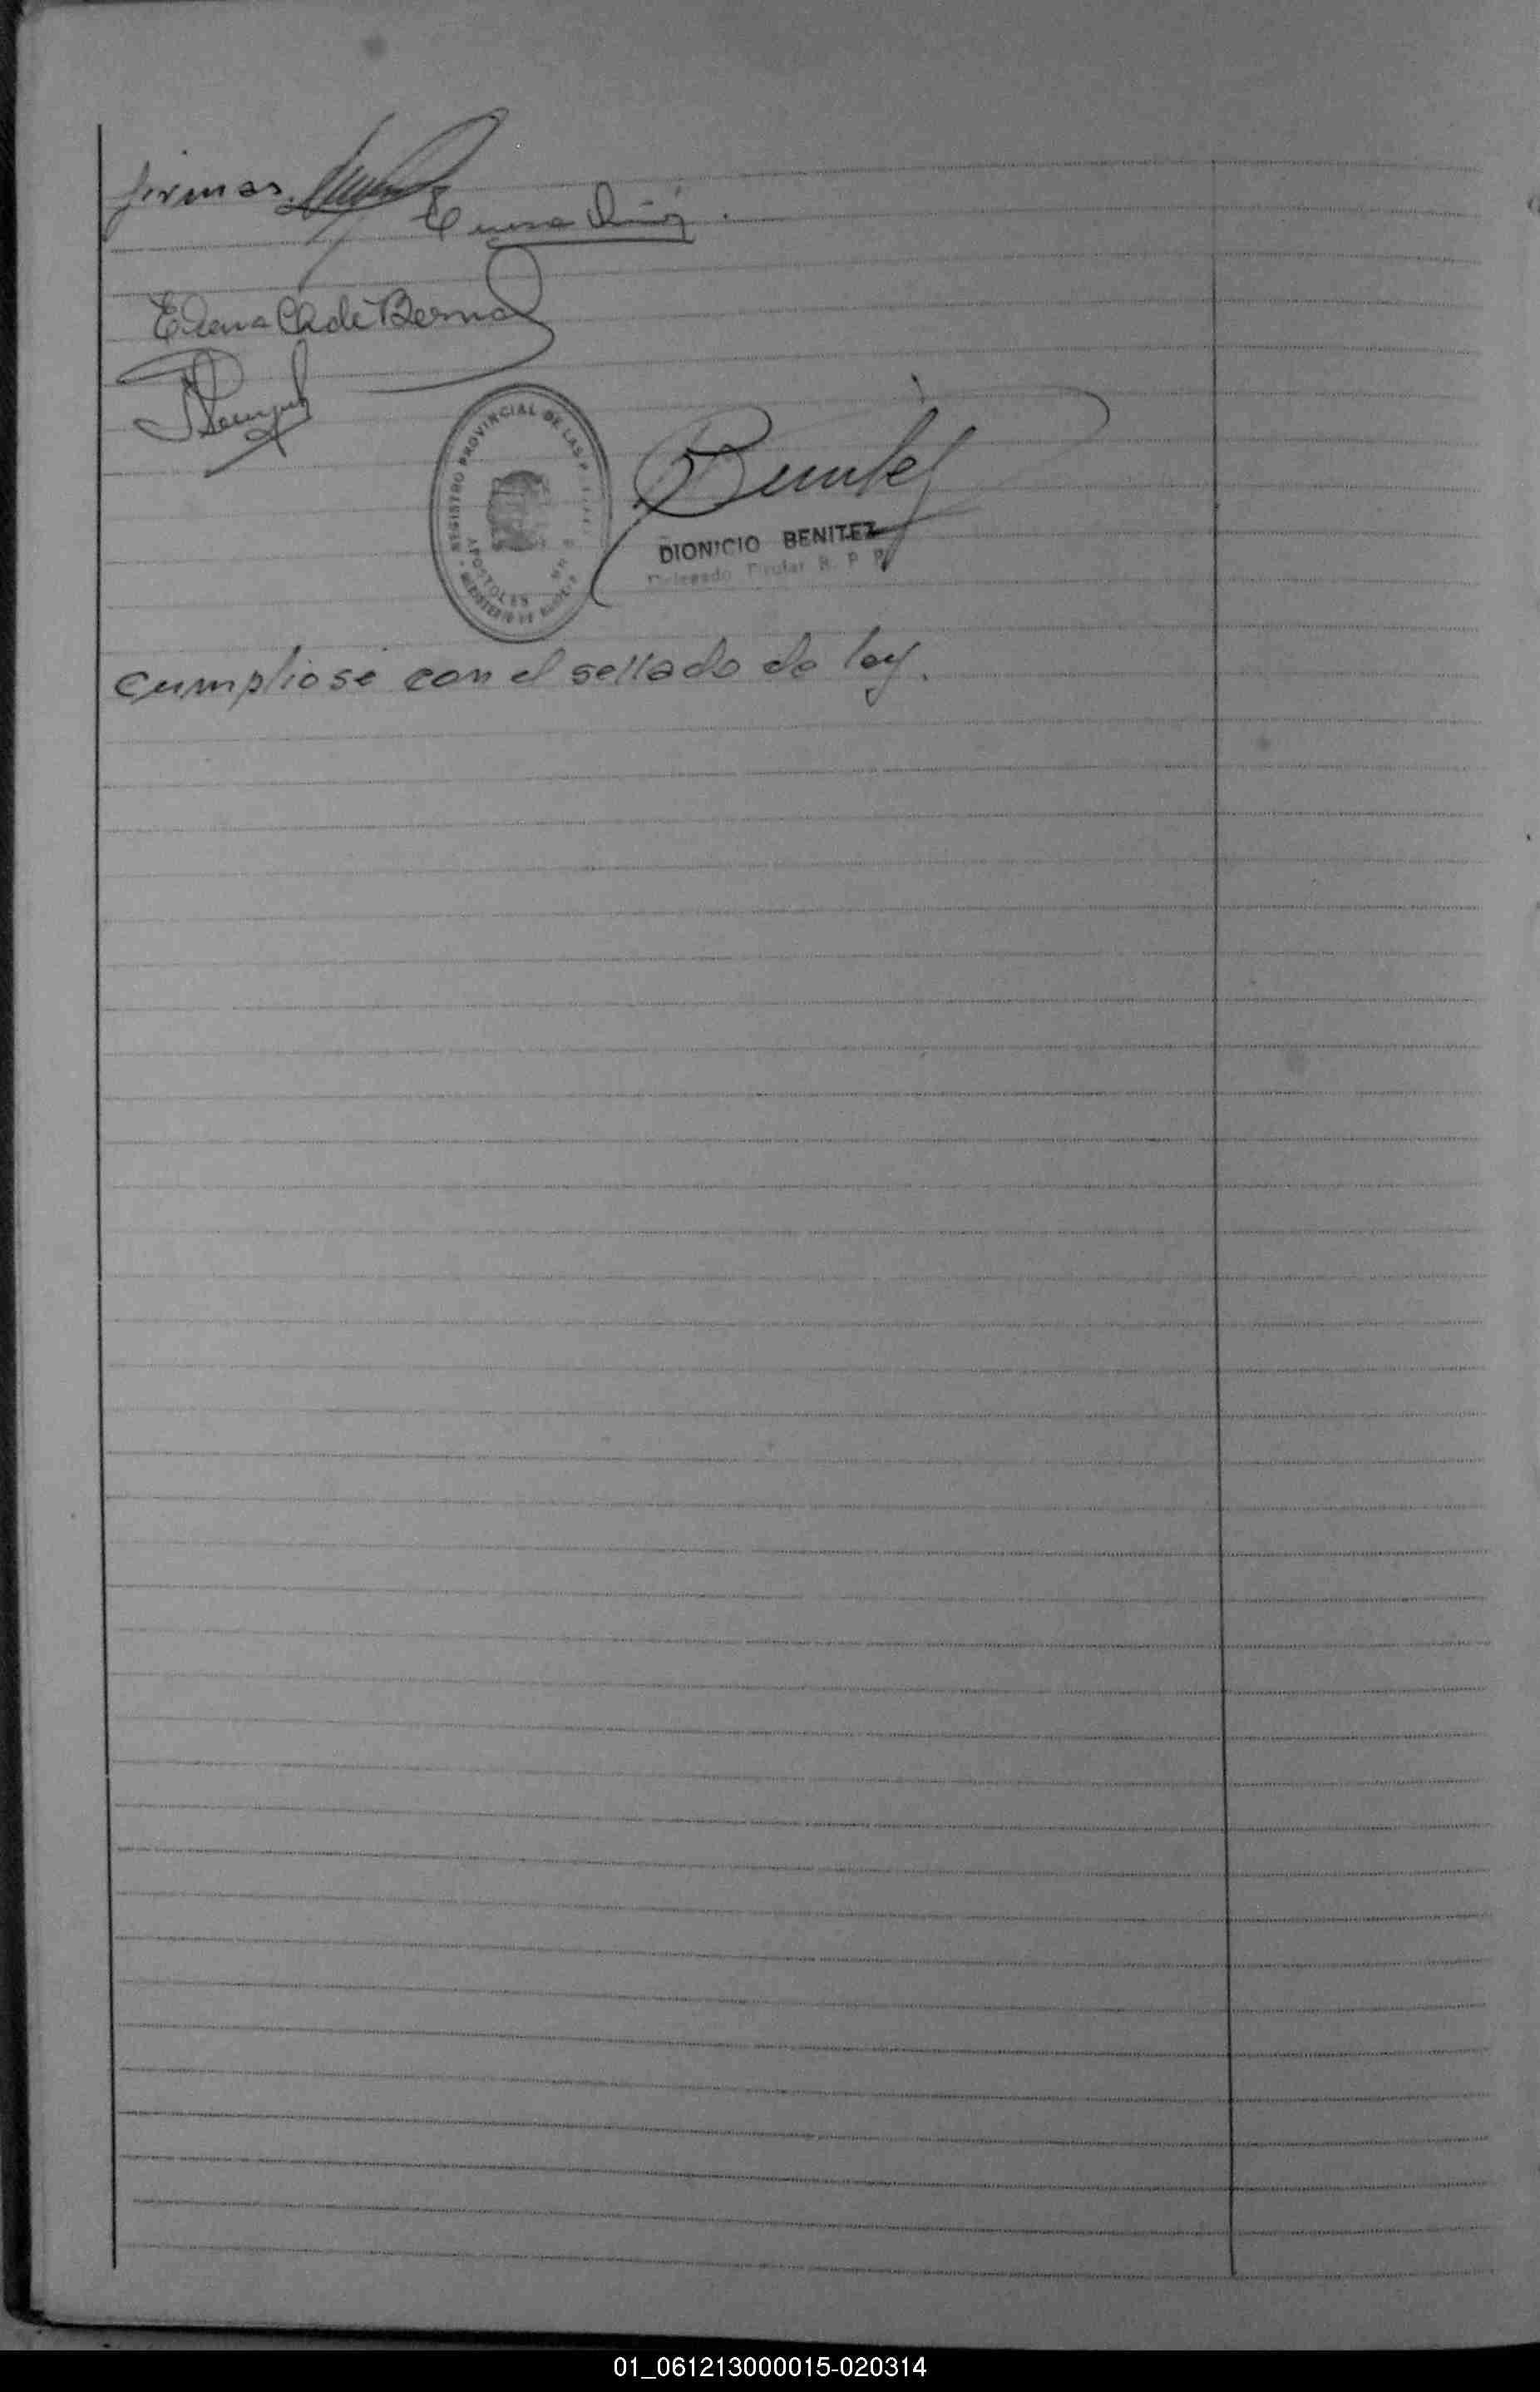 firmas.
Elena Ch de Bernal
REGISTRO PROVINCIAL DE LAS
APOSTOLES
MINISTERIO DE
Benitez
DIONICIO BENITEZ
Delegado Titular R. P. P.
Cumpliose con el sellado de ley.
01_061213000015-020314